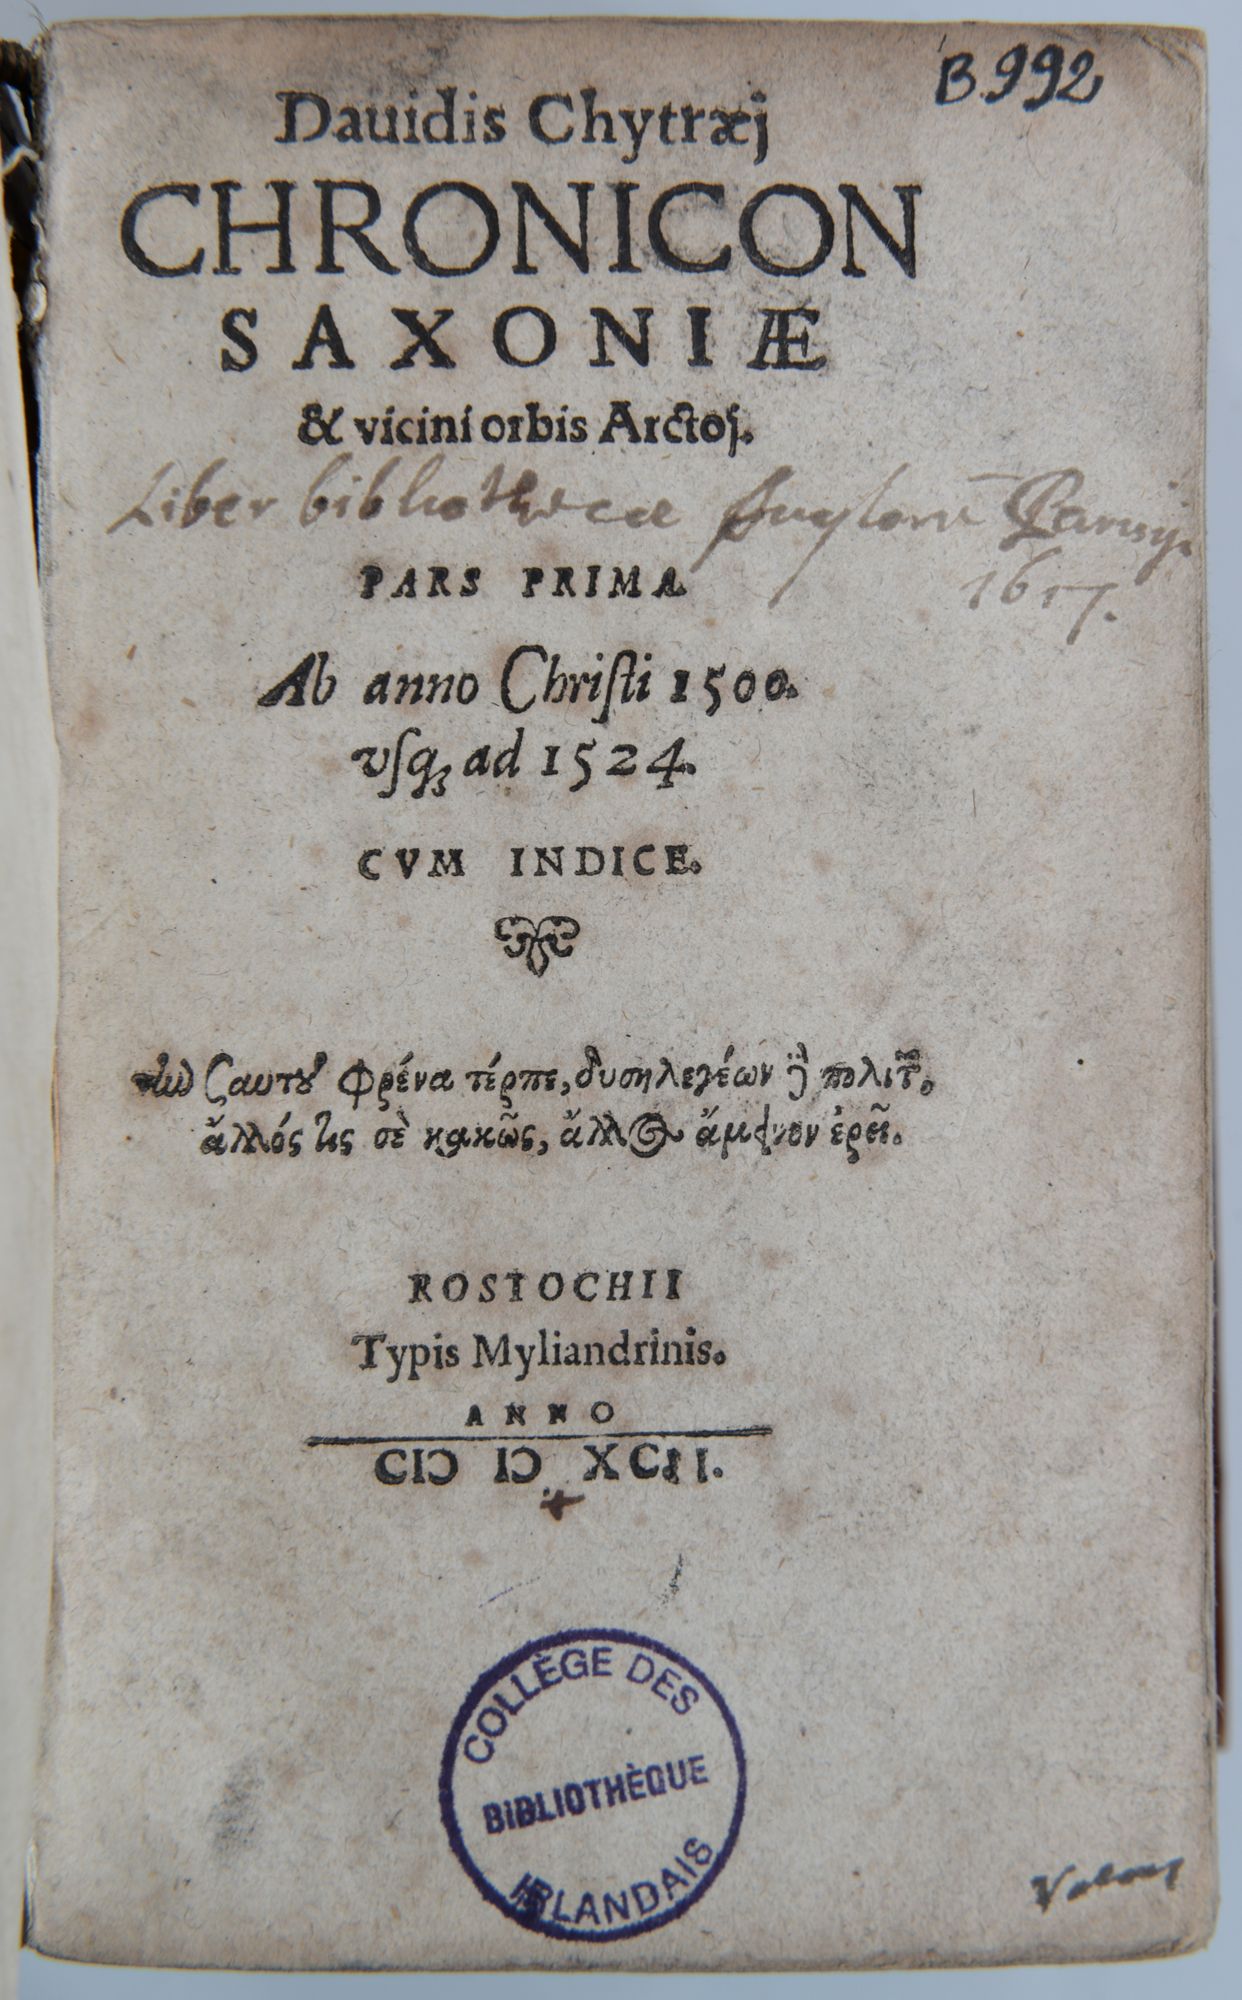 B.992
Dauidis Chytræj
CHRONICON
SAXONIÆ
& vicini orbis Arctoj.
Liber bibliothecæ Anglorū Parisijs
1617.
PARS PRIMA.
Ab anno Chriſti 1500.
vſqꝫ ad 1524.
CVM INDICE.
ϲαυτοῦ φρένα τέρπε, δυσηλεγέων πολιτῶν.
ἄλλός τις σὲ κακῶς, ἄλλος ἄμεινον ἐρεῖ.
ROSTOCHII
Typis Myliandrinis.
ANNO
CIↃ IↃ XCIII.
COLLÈGE DES
BIBLIOTHÈQUE
IRLANDAIS